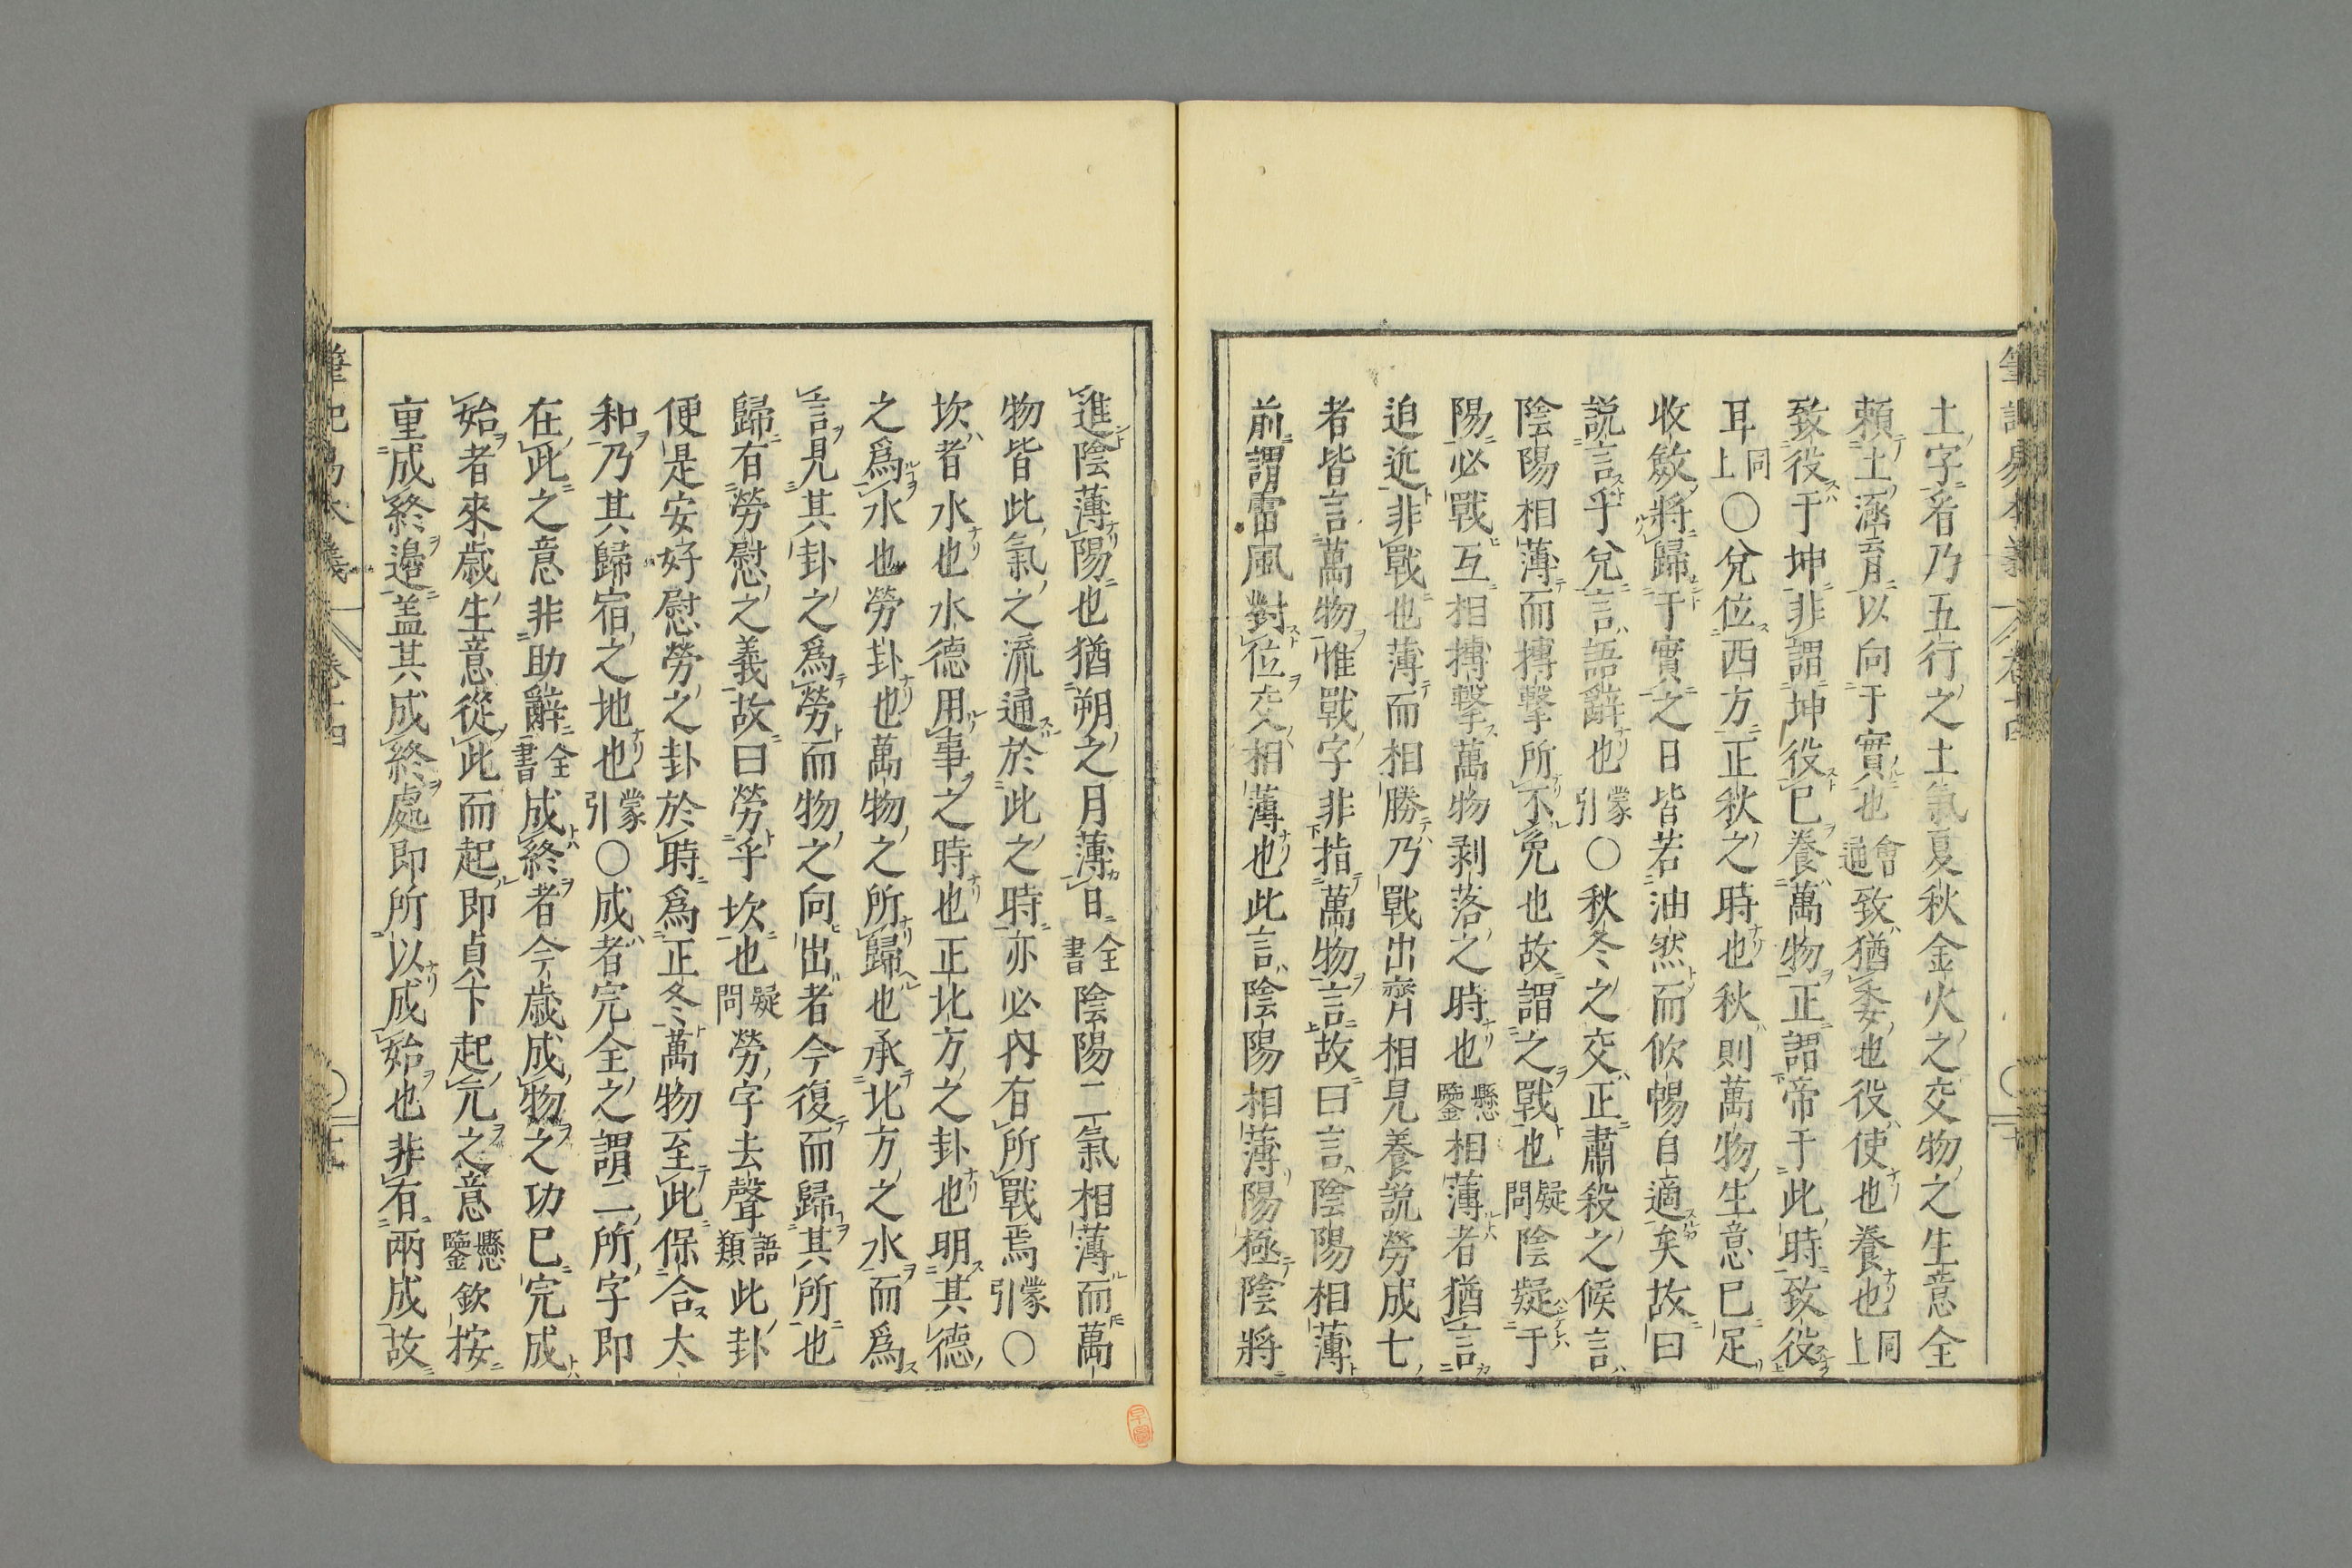 土字看乃五行之土氣夏秋金火之交物之生意全
頼土涵育以向于實也會通致猶委也役使也養也同上
致役于坤非謂坤役已養萬物正謂帝于此時致役
耳同上〇兌位西方正秋之時也秋則萬物生意已足
收斂將歸于實之日皆若油然而欣暢自適矣故曰
說言乎兌言語辭也蒙引〇秋冬之交正肅殺之候言
陰陽相薄而搏擊所不免也故謂之戰也疑問陰疑于
陽必戰互相搏擊萬物剥落之時也懸鑒相薄者猶言
迫近非戰也薄而相勝乃戰出齊相見養説勞成七
者皆言萬物惟戰字非指萬物言故曰言陰陽相薄
前謂雷風對位交相薄也此言陰陽相薄陽極陰將
進陰薄陽也猶朔之月薄日全書陰陽二氣相薄而萬
物皆此氣之流通於此之時亦必內有所戰焉蒙引〇
坎者水也水德用事之時也正北方之卦也明其德
之爲水也勞卦也萬物之所歸也承北方之水而爲
言見其卦之爲勞而物之向出者今復而歸其所也
歸有勞慰之義故曰勞乎坎也疑問勞字去聲語類此卦
便是安好慰勞之卦於時爲正冬萬物至此保合太
和乃其歸宿之地也蒙引〇成者完全之謂二所字即
在此之意非助辭全書成終者今歲成物之功已完成
始者來歲生意從此而起即貞下起元之意懸鑒欽按
重成終邉盖其成終處即所以成始也非有兩成故